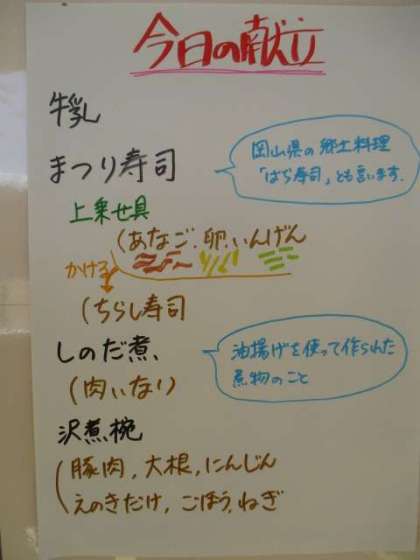 今日の献立
牛乳
まつり寿司
岡山県の郷土料理
「ばら寿司」とも言います。
上乗せ具
(あなご.卵.いんげん
かける
(ちらし寿司
しのだ煮
(肉いなり)
油揚げを使って作られた
煮物のこと
沢煮椀
豚肉,大根,にんじん
えのきたけ,ごぼう,ねぎ